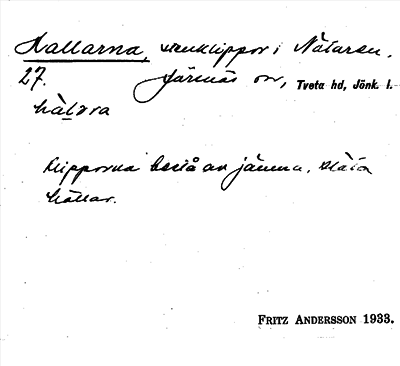 Hallarna, stenklippor i Nätaren.
27. Järsnäs sn, Tveta hd, Jönk. l.
hàl̲ara
Klipporna bestå av jämna, släta
hällar.
FRITZ ANDERSSON 1933.